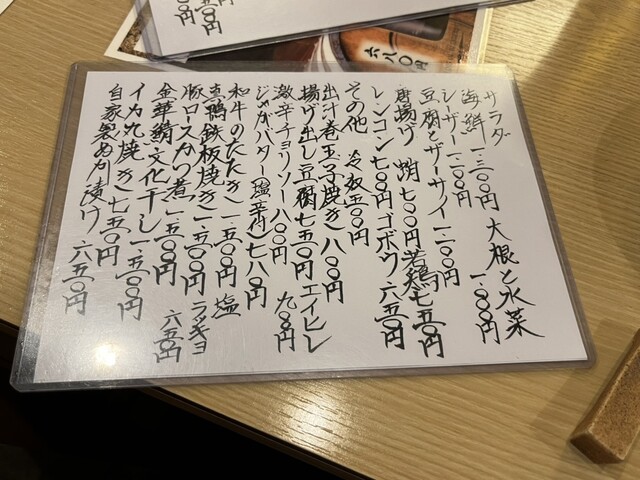 サラダ
海鮮一、三〇〇円 大根と水菜
シーザー一二〇〇円 一、〇〇〇円
豆腐とザーサイ一二〇〇円
唐揚げ 蛸七〇〇円若鶏七五〇円
レンコン七〇〇円ゴボウ六五〇円
その他 冷奴五〇〇円
出汁巻玉子焼き八〇〇円
揚げ出し豆腐七五〇円エイヒレ
激辛チョリソー八〇〇円 九〇〇円
ジャガバター塩辛付七八〇円
和牛のたたき一、五〇〇円 塩
真鴨鉄板焼き一、五〇〇円ラッキョ
豚ロースカツ煮一、五〇〇円 六五〇円
金華鯖文化干し一、五〇〇円
イカ丸焼き七五〇円
自家製ぬか漬け六五〇円
六八〇円
五〇〇円
〇円